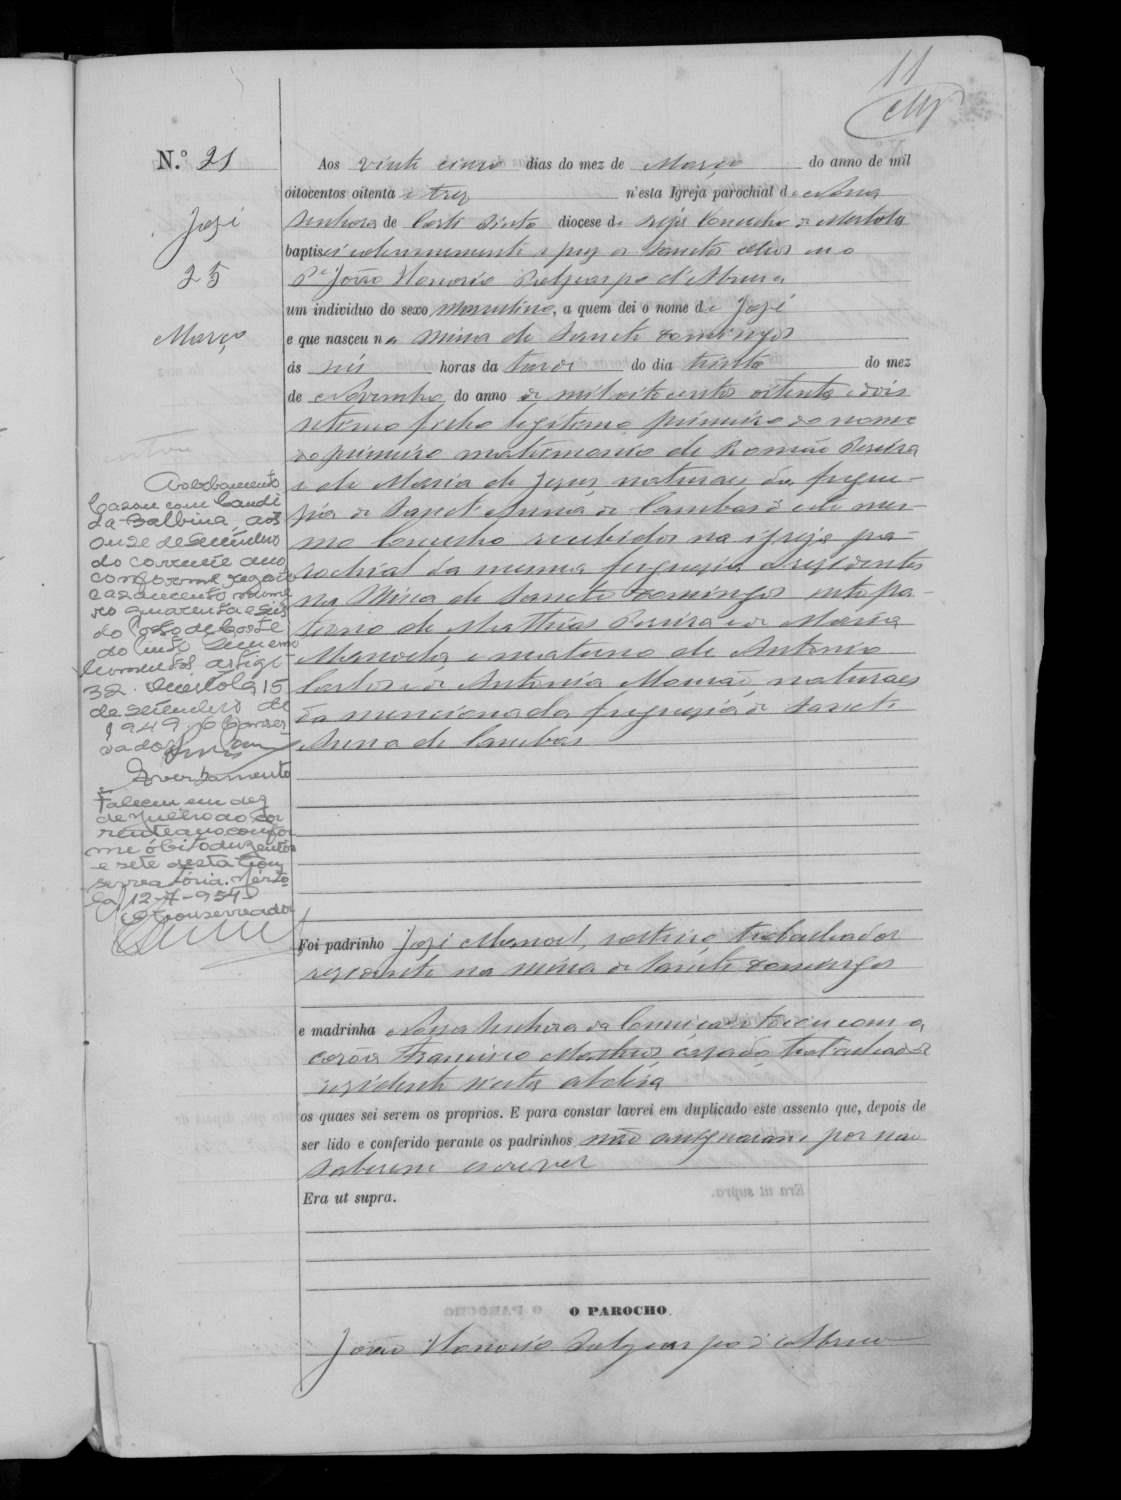 11
N.º 21
José
25
Março
Aos vinte cinco dias do mez de Março do anno de mil
oitocentos oitenta e trez n'esta Igreja parochial de Nossa
Senhora de Corte Pinto diocese de Beja Concelho de Mertola
baptisei solemnemente e puz os Sanctos Oleos eu o
P.e João Honorio Polycarpo d'Abreu
um individuo do sexo masculino, a quem dei o nome de José
e que nasceu na Mina de Sancto Domingos
ás seis horas da tarde do dia trinta do mez
de Novembro do anno de mil oito centos oitenta e dois
filho legitimo primeiro do nome
do primeiro matrimonio de Romão Pereira
e de Maria de Jesus, naturaes da fregue-
zia de Sanct'Anna de Cambas d'este mes-
mo Concelho recebidos na igreja pa-
rochial da mesma freguezia e rezidentes
na Mina de Sancto Domingos neto pa-
terno de Mathias Pereira e de Maria
Manoela e materno de Antonio
Carlos e de Antonia Maria, naturaes
da mencionada freguezia de Sanct'
Anna de Cambas
Foi padrinho José Manoel, solteiro, trabalhador
rezidente na Mina de Sancto Domingos
e madrinha Nossa Senhora da Conceição tocou com a
corôa Francisco Martins, cazado, trabalhador
rezidente n'esta aldeia
os quaes sei serem os proprios. E para constar lavrei em duplicado este assento que, depois de
ser lido e conferido perante os padrinhos não assignaram por não
saberem escrever
Era ut supra.
O PAROCHO
João Honorio Polycarpo d'Abreu
Averbamento
Casou com Candi
da Balbina, aos
onze de setembro
do corrente ano
conforme registo
casamento nume
ro quarenta e seis
do Posto de Corte
do Pinto
Mertola, 15
de setembro de
1949. O Conser
vador
Averbamento
Faleceu em dez
de julho do cor
rente ano confor
me óbito duzentos
e sete desta Con
servatória. Mérto
la, 12-7-954
O Conservador